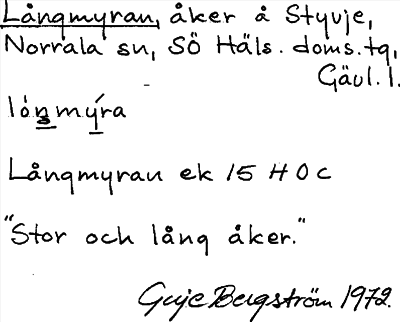 Långmyran, åker å Styvje,
Norrala sn, SÖ Häls. doms.tg,
Gävl. l.
lóŋmýra
Långmyran ek 15 H O c
"Stor och lång åker."
Guje Bergström 1972.